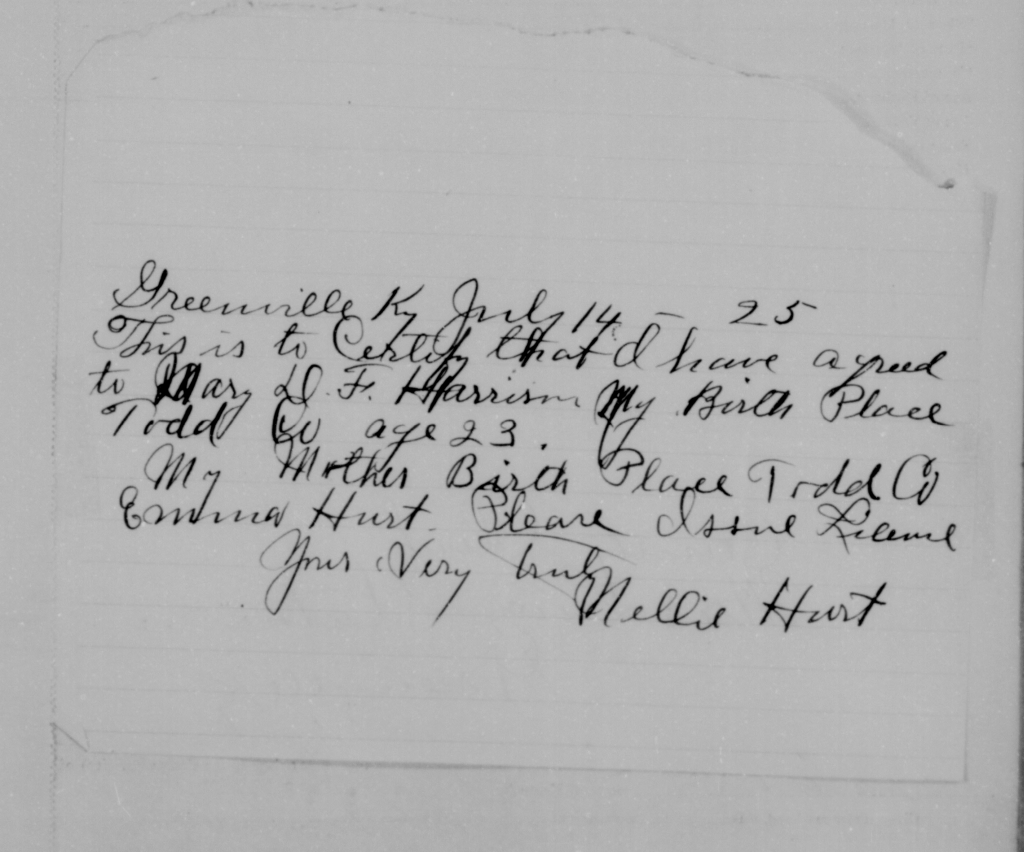 Greenville Ky July 14 - 25
This is to Certify that I have agreed
to Mary D. F. Harrison My Birth Place
Todd Co age 23.
My Mother Birth Place Todd Co
Emma Hurt. Please Issue License
Your Very truly
Nellie Hurt